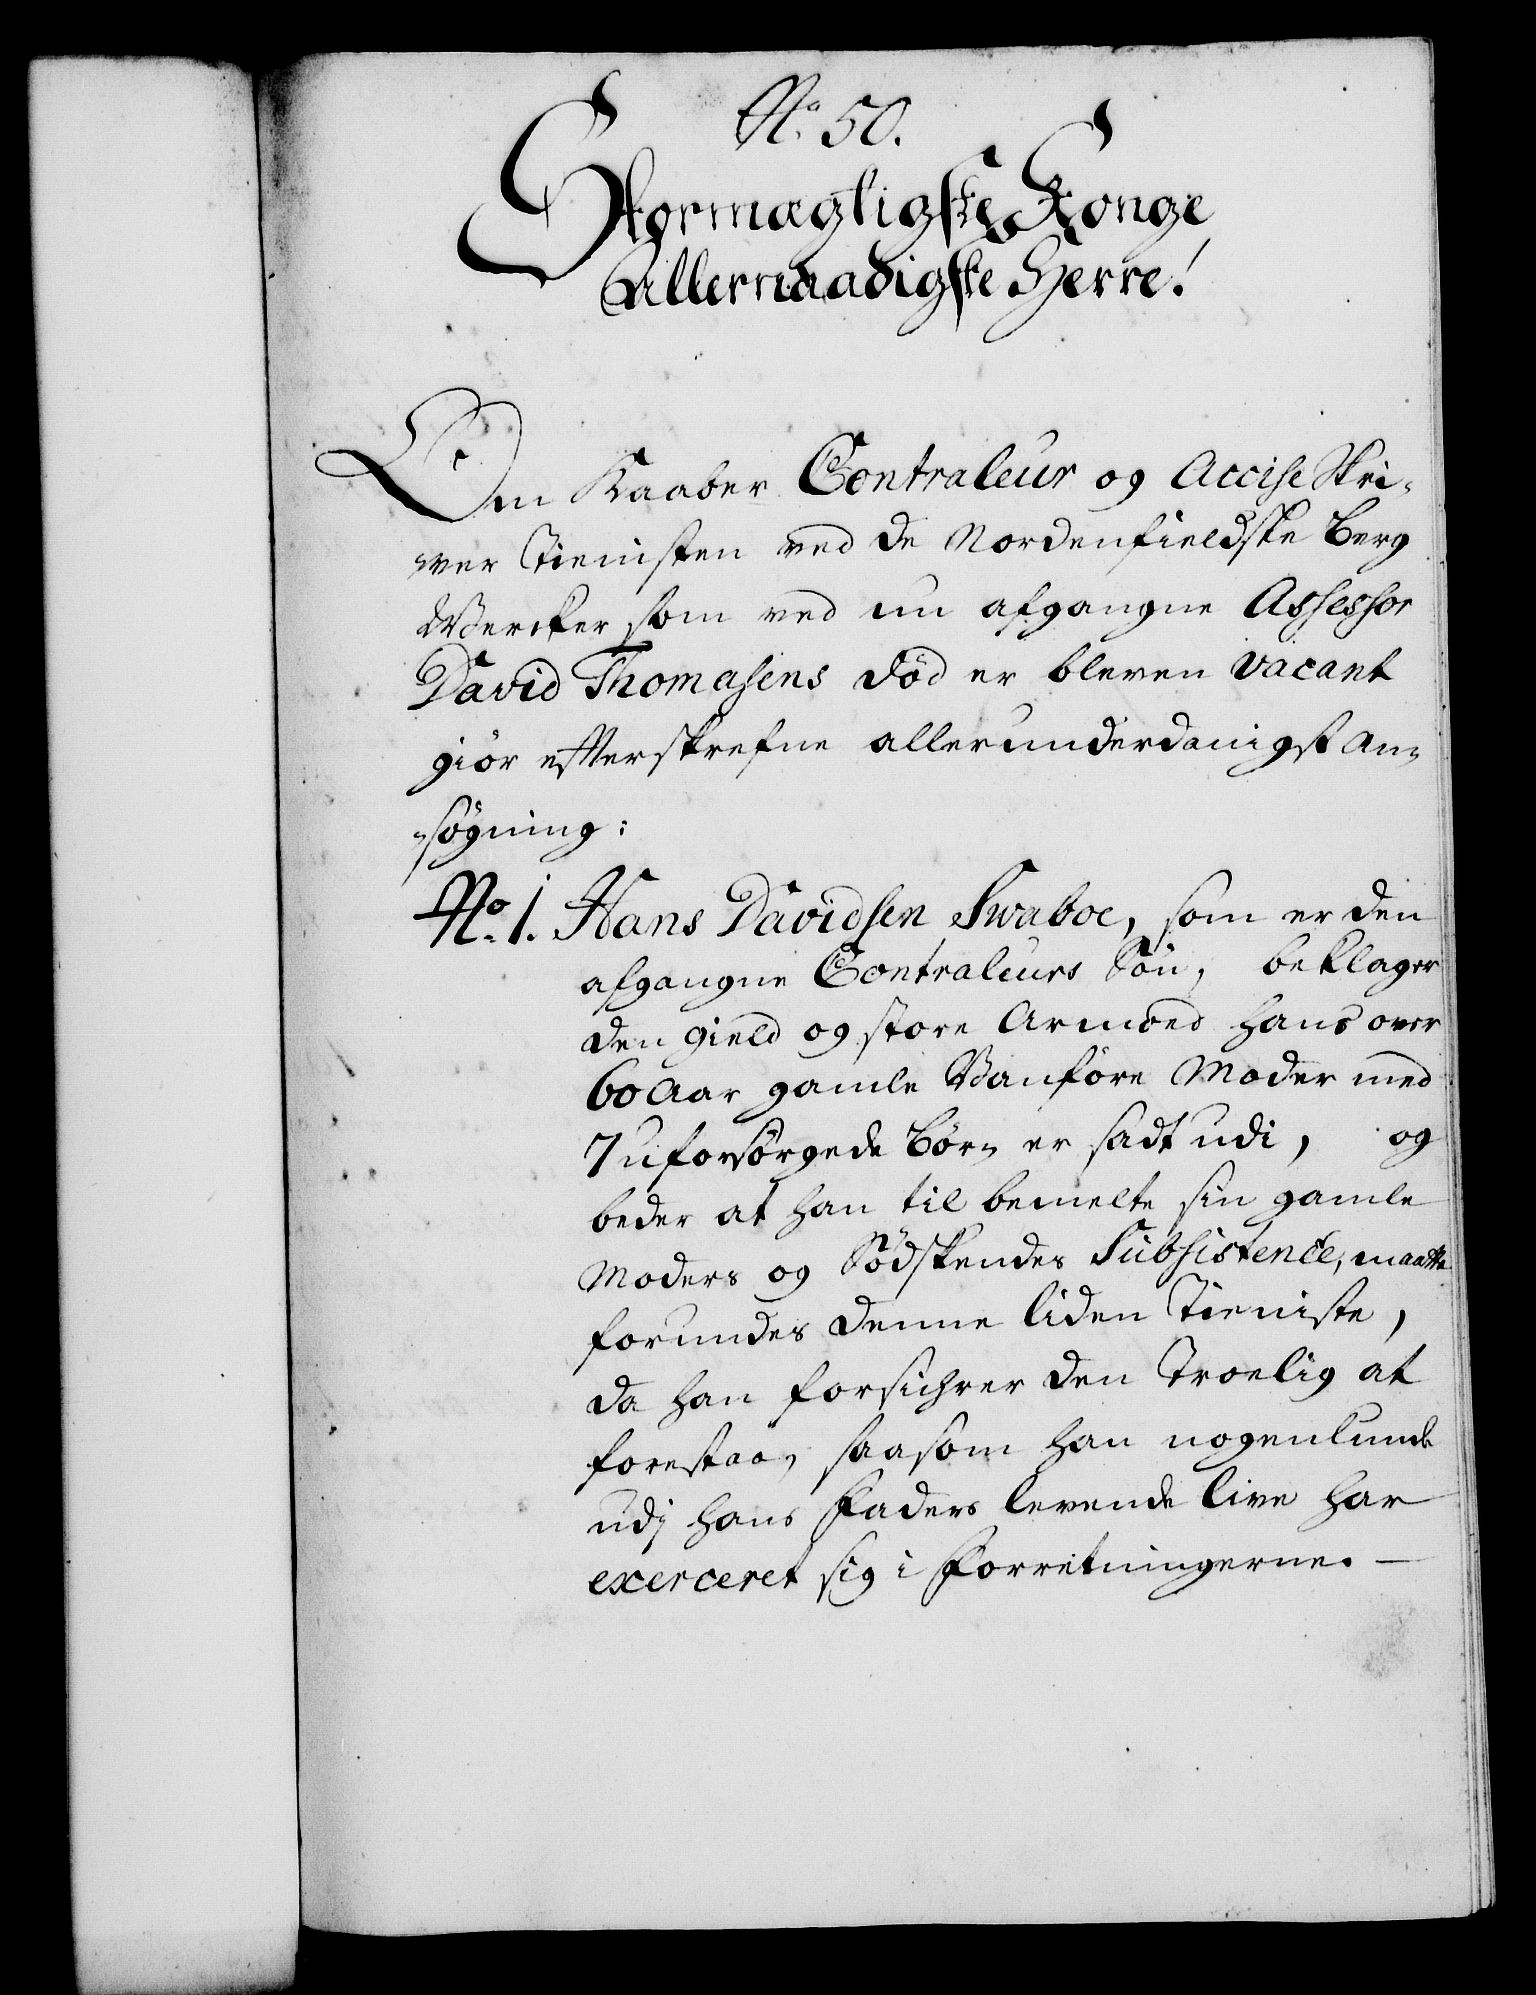 No. 50.
Stormægtigste Konge
Allernaadigste Herre!
Om Kaaber Contraleur og Accise Skri-
ver Tienisten ved de Nordenfieldske Berg
Wercker som ved nu afgangne Assessor
David Thomasens død er bleven vacant
giør efterskrefne allerunderdanigst an-
søgning:
No. 1. Hans Davidsen Swaboe, som er den
afgangne Contraleurs Søn, beklager
den gield og store Armoed hans over
60 Aar gamle Vanføre Moder med
7 uforsørgede Børn er sadt udi, og
beder at han til bemelte sin gamle
Moders og Sødskendes Subsistence, maatte
forundes denne liden Tieniste,
da han forsichrer den Troelig at
forestaa, saasom han nogenlunde
udj hans Faders levende live har
exerceret sig i Forretningerne. —